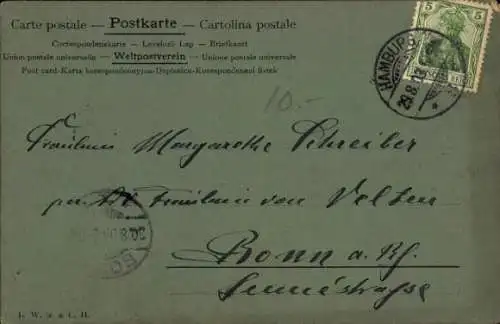 Carte postale — Postkarte — Cartolina postale
Correspondenzkarte — Levelezö Lap — Briefkaart
Union postale universelle — Weltpostverein — Unione postale universale
Post card-Karta korespondencyjna-Dopisnice-Korespondenční lístek
5
HAMBURG
29.8.
10.-
Fräulein Margarethe Schreiber
Fräulein von Velten
30.8.
Bonn a. Rh.
L. W. & C. H.